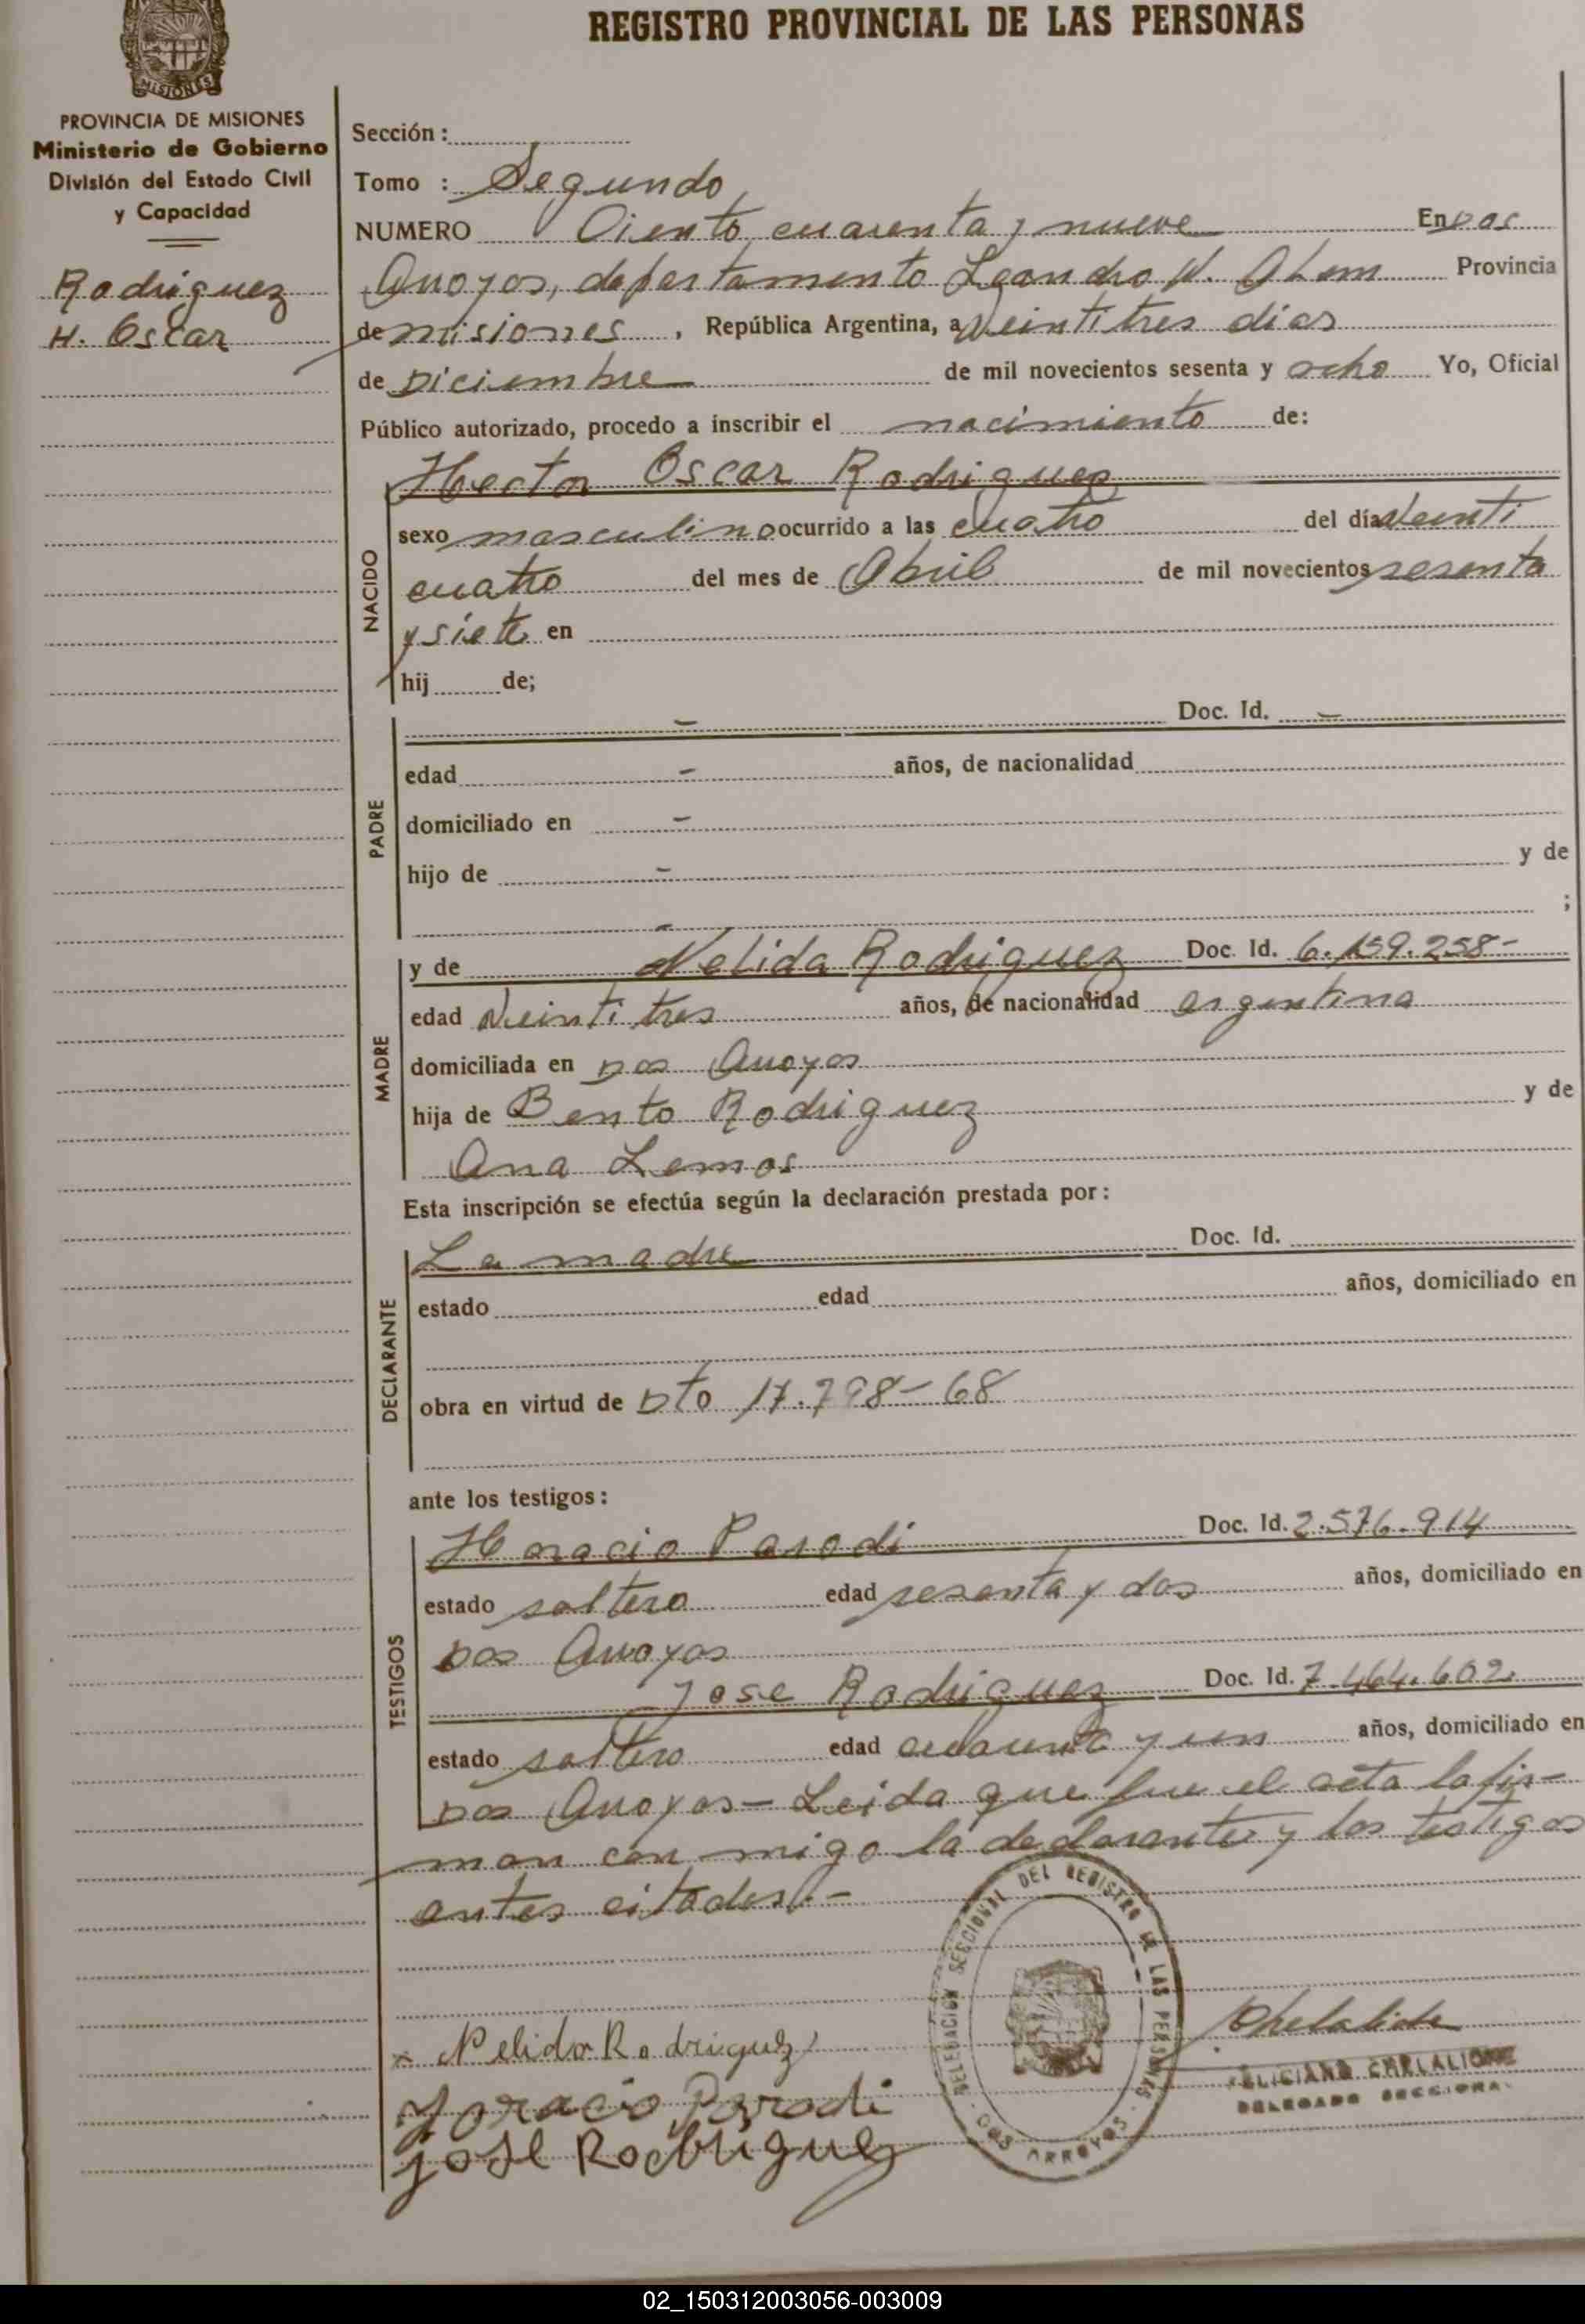 REGISTRO PROVINCIAL DE LAS PERSONAS
MISIONES
PROVINCIA DE MISIONES
Ministerio de Gobierno
División del Estado Civil
y Capacidad
Rodriguez
H. Oscar
Sección :
Tomo : Segundo
NUMERO Ciento cuarenta y nueve En Dos
Arroyos, departamento Leandro N. Alem Provincia
de misiones , República Argentina, a Veintitres dias
de Diciembre de mil novecientos sesenta y ocho Yo, Oficial
Público autorizado, procedo a inscribir el nacimiento de:
Hector Oscar Rodriguez
NACIDO
sexo masculino ocurrido a las cuatro del día Veinti
cuatro del mes de Abril de mil novecientos sesenta
y siete en
hij de;
PADRE
- Doc. Id. -
edad - años, de nacionalidad
domiciliado en -
hijo de - y de
- ;
MADRE
y de Nelida Rodriguez Doc. Id. 6.159.258-
edad Veintitres años, de nacionalidad argentina
domiciliada en Dos Arroyos
hija de Bento Rodriguez y de
Ana Lemos
Esta inscripción se efectúa según la declaración prestada por:
DECLARANTE
La madre Doc. Id.
estado edad años, domiciliado en
obra en virtud de Dto 17.798-68
ante los testigos:
TESTIGOS
Horacio Parodi Doc. Id. 2.576.914
estado soltero edad sesenta y dos años, domiciliado en
Dos Arroyos
Jose Rodriguez Doc. Id. 7.464.602.
estado soltero edad cuarenta y un años, domiciliado en
Dos Arroyos- Leida que fue el acta la fir-
man con migo la declarante y los testigos
antes citados.-
DELEGACION SECCIONAL DEL REGISTRO DE LAS PERSONAS
DOS ARROYOS
x Nelida Rodriguez
Horacio Parodi
José Rodriguez
FELICIANO CHELALICHE
DELEGADO SECCIONAL
02_150312003056-003009